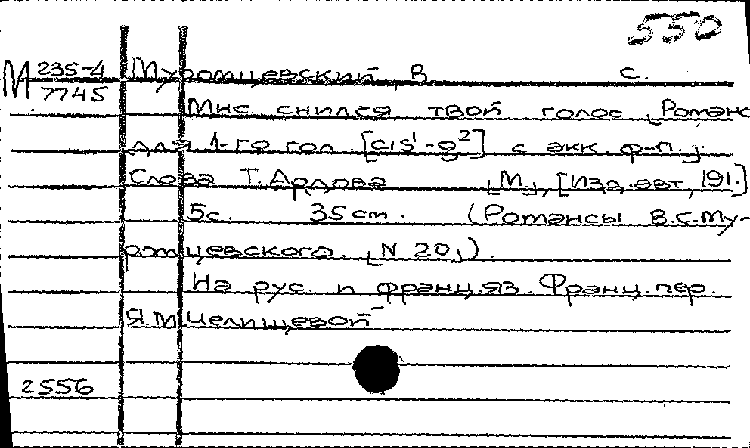 550
М 235-4
7745
Муромцевский, В. С.
Мне снился твой голос [Романс
для 1-го гол. [cis¹-g²] с акк. ф-п.].
Слова Т. Ардова [М.], [Изд. авт., 191.]
5с. 35 cm. (Романсы В.С. Му-
ромцевского. [N 20.]).
На рус. и франц. яз. Франц. пер.
Я.М. Челищевой
2556